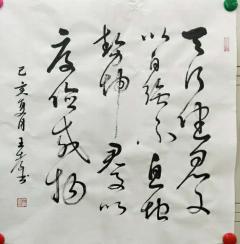 天行健君子
以自强不息地
勢坤君子以
厚德載物
己亥夏月王